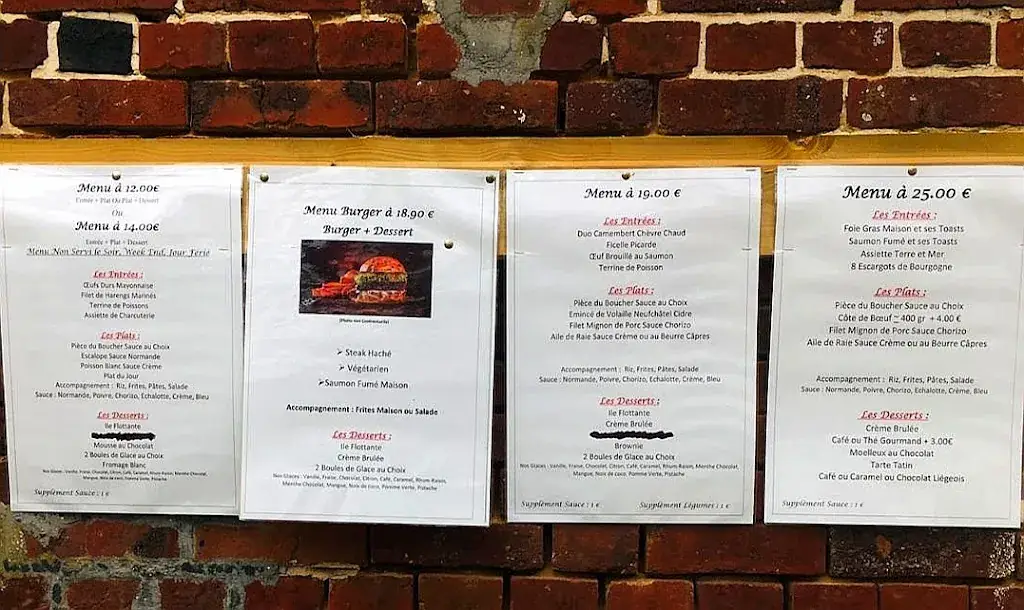 Menu à 12.00€
Entrée + Plat Ou Plat + Dessert
Ou
Menu à 14.00€
Entrée + Plat + Dessert
Menu Non Servi le Soir, Week End, Jour Férié
Les Entrées :
Œufs Durs Mayonnaise
Filet de Harengs Marinés
Terrine de Poissons
Assiette de Charcuterie
Les Plats :
Pièce du Boucher Sauce au Choix
Escalope Sauce Normande
Poisson Blanc Sauce Crème
Plat du Jour
Accompagnement : Riz, Frites, Pâtes, Salade
Sauce : Normande, Poivre, Chorizo, Echalotte, Crème, Bleu
Les Desserts :
Ile Flottante
Mousse au Chocolat
2 Boules de Glace au Choix
Fromage Blanc
Nos Glaces : Vanille, Fraise, Chocolat, Citron, Café, Caramel, Rhum-Raisin, Menthe Chocolat,
Mangue, Noix de coco, Pomme Verte, Pistache
Supplément Sauce : 1 €
Menu Burger à 18.90 €
Burger + Dessert
(Photo non Contractuelle)
➢ Steak Haché
➢ Végétarien
➢Saumon Fumé Maison
Accompagnement : Frites Maison ou Salade
Les Desserts :
Ile Flottante
Crème Brulée
2 Boules de Glace au Choix
Nos Glaces : Vanille, Fraise, Chocolat, Citron, Café, Caramel, Rhum-Raisin,
Menthe Chocolat, Mangue, Noix de coco, Pomme Verte, Pistache
Menu à 19.00 €
Les Entrées :
Duo Camembert Chèvre Chaud
Ficelle Picarde
Œuf Brouillé au Saumon
Terrine de Poisson
Les Plats :
Pièce du Boucher Sauce au Choix
Emincé de Volaille Neufchâtel Cidre
Filet Mignon de Porc Sauce Chorizo
Aile de Raie Sauce Crème ou au Beurre Câpres
Accompagnement : Riz, Frites, Pâtes, Salade
Sauce : Normande, Poivre, Chorizo, Echalotte, Crème, Bleu
Les Desserts :
Ile Flottante
Crème Brulée
Brownie
2 Boules de Glace au Choix
Nos Glaces : Vanille, Fraise, Chocolat, Citron, Café, Caramel, Rhum-Raisin, Menthe Chocolat,
Mangue, Noix de coco, Pomme Verte, Pistache
Supplément Sauce : 1 € Supplément Légumes : 1 €
Menu à 25.00 €
Les Entrées :
Foie Gras Maison et ses Toasts
Saumon Fumé et ses Toasts
Assiette Terre et Mer
8 Escargots de Bourgogne
Les Plats :
Pièce du Boucher Sauce au Choix
Côte de Bœuf ~ 400 gr + 4.00 €
Filet Mignon de Porc Sauce Chorizo
Aile de Raie Sauce Crème ou au Beurre Câpres
Accompagnement : Riz, Frites, Pâtes, Salade
Sauce : Normande, Poivre, Chorizo, Echalotte, Crème, Bleu
Les Desserts :
Crème Brulée
Café ou Thé Gourmand + 3.00€
Moelleux au Chocolat
Tarte Tatin
Café ou Caramel ou Chocolat Liégeois
Supplément Sauce : 1 €